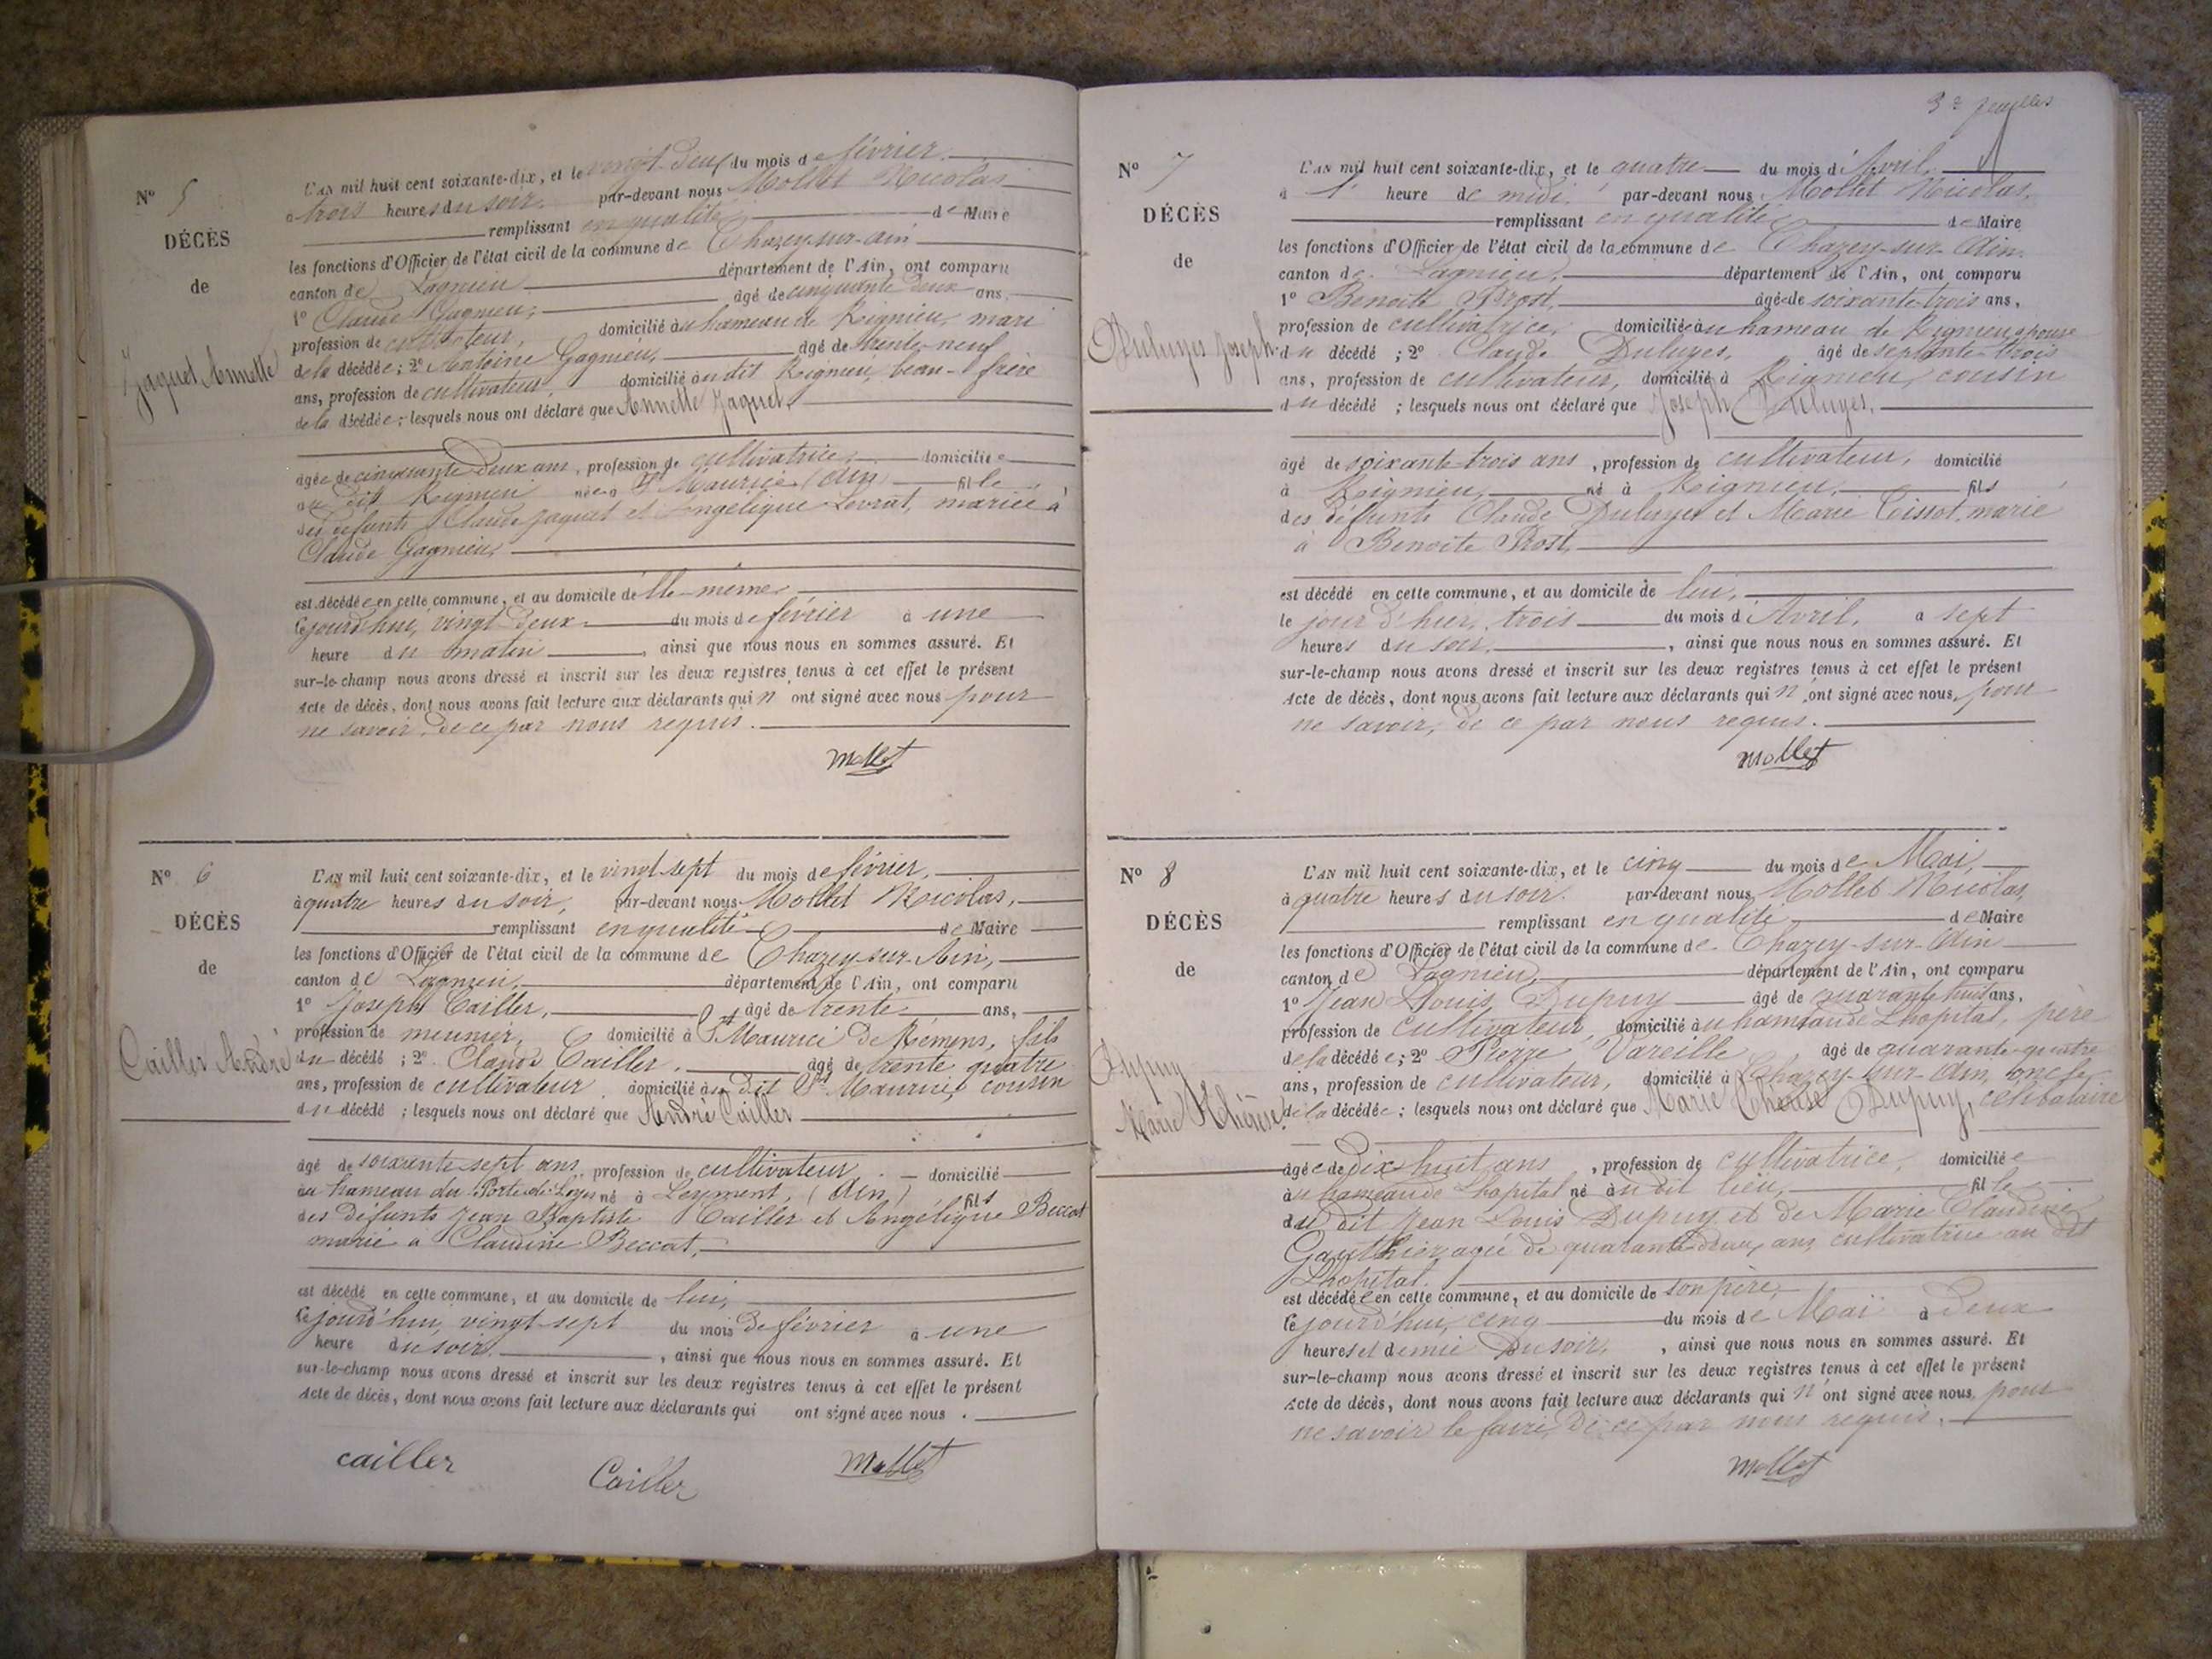 N° 5
DÉCÈS
de
Jaquet Annette
L'AN mil huit cent soixante-dix, et le vingt deux du mois de février.
à trois heures du soir. par-devant nous Mollet Nicolas
remplissant en qualité de Maire
les fonctions d'Officier de l'état civil de la commune de Chazey-sur-Ain
canton de Lagnieu département de l'Ain, ont comparu
1° Claude Gagneu, âgé de cinquante deux ans,
profession de cultivateur, domicilié au hameau de Rignieu, mari
de la décédée; 2° Antoine Gagnieu, âgé de trente-neuf
ans, profession de cultivateur, domicilié au dit Rignieu, beau-frère
de la décédée; lesquels nous ont déclaré que Annette Jaquet,
âgée de cinquante deux ans, profession de cultivatrice, domiciliée
au dit Rignieu née à St Maurice (Ain) fille
des défunts Claude Jaquet et Angélique Levrat, mariée à
Claude Gagnieu,
est décédée en cette commune, et au domicile d'elle-même
cejourd'hui, vingt deux du mois de février à une
heure du matin, ainsi que nous nous en sommes assuré. Et
sur-le-champ nous avons dressé et inscrit sur les deux registres tenus à cet effet le présent
Acte de décès, dont nous avons fait lecture aux déclarants qui n'ont signé avec nous pour
ne savoir, de ce par nous requis.
Mollet
N° 6
DÉCÈS
de
Cailler André
L'AN mil huit cent soixante-dix, et le vingt sept du mois de février,
à quatre heures du soir, par-devant nous Mollet Nicolas,
remplissant en qualité de Maire
les fonctions d'Officier de l'état civil de la commune de Chazey-sur-Ain,
canton de Lagnieu, département de l'Ain, ont comparu
1° Joseph Cailler, âgé de trente ans,
profession de meunier, domicilié à St Maurice de Rémens, fils
du décédé; 2° Claude Cailler, âgé de trente quatre
ans, profession de cultivateur, domicilié au dit St Maurice, cousin
du décédé; lesquels nous ont déclaré que André Cailler
âgé de soixante sept ans, profession de cultivateur domicilié
au hameau du Port de Loyes né à Leyment, (Ain) fils
des défunts Jean Baptiste Cailler et Angélique Beccat
marié à Claudine Beccat,
est décédé en cette commune, et au domicile de lui,
cejourd'hui, vingt sept du mois de février à une
heure du soir, ainsi que nous nous en sommes assuré. Et
sur-le-champ nous avons dressé et inscrit sur les deux registres tenus à cet effet le présent
Acte de décès, dont nous avons fait lecture aux déclarants qui ont signé avec nous.
cailler Cailler Mollet
3e feuillet
N° 7
DÉCÈS
de
Duluyes Joseph
L'AN mil huit cent soixante-dix, et le quatre du mois d'Avril,
à 1 heure de midi. par-devant nous Mollet Nicolas,
remplissant en qualité de Maire
les fonctions d'Officier de l'état civil de la commune de Chazey-sur-Ain
canton de Lagnieu, département de l'Ain, ont comparu
1° Benoite Prost, âgée de soixante-trois ans,
profession de cultivatrice, domiciliée au hameau de Rignieu épouse
du décédé; 2° Claude Duluyes, âgé de septante-trois
ans, profession de cultivateur, domicilié à Rignieu, cousin
du décédé; lesquels nous ont déclaré que Joseph Duluyes,
âgé de soixante-trois ans, profession de cultivateur, domicilié
à Rignieu, né à Rignieu, fils
des défunts Claude Duluyes et Marie Tissot, marié
à Benoite Prost,
est décédé en cette commune, et au domicile de lui,
le jour d'hier, trois du mois d'Avril, à sept
heures du soir, ainsi que nous nous en sommes assuré. Et
sur-le-champ nous avons dressé et inscrit sur les deux registres tenus à cet effet le présent
Acte de décès, dont nous avons fait lecture aux déclarants qui n'ont signé avec nous, pour
ne savoir, de ce par nous requis.
Mollet
N° 8
DÉCÈS
de
Dupuy
Marie Thérèse
L'AN mil huit cent soixante-dix, et le cinq du mois de Mai,
à quatre heures du soir. par-devant nous Mollet Nicolas,
remplissant en qualité de Maire
les fonctions d'Officier de l'état civil de la commune de Chazey-sur-Ain
canton de Lagnieu, département de l'Ain, ont comparu
1° Jean Louis Dupuy âgé de quarante huit ans,
profession de cultivateur, domicilié au hameau de Lhopital, père
de la décédée; 2° Pierre Vareille, âgé de quarante-quatre
ans, profession de cultivateur, domicilié à Chazey-sur-Ain, oncle
de la décédée; lesquels nous ont déclaré que Marie Thérèse Dupuy, célibataire
âgée de dix huit ans, profession de cultivatrice, domiciliée
au hameau de Lhopital né au dit lieu, fille
du dit Jean Louis Dupuy et de Marie Claudine
Gauthier, agée de quarante deux ans, cultivatrice au dit
Lhopital.
est décédée en cette commune, et au domicile de son père,
cejourd'hui, cinq du mois de Mai à deux
heures et demie du soir, ainsi que nous nous en sommes assuré. Et
sur-le-champ nous avons dressé et inscrit sur les deux registres tenus à cet effet le présent
Acte de décès, dont nous avons fait lecture aux déclarants qui n'ont signé avec nous, pour
ne savoir le faire, de ce par nous requis.
Mollet